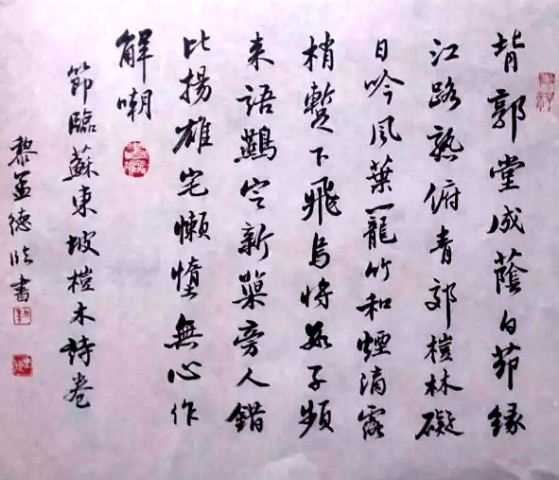 背郭堂成蔭白茆緣
江路熟俯青郊榿林礙
日吟風葉籠竹和煙滴露
梢暫下飛烏將數子頻
来語鷰定新巢旁人錯
比揚雄宅懶惰無心作
解嘲
節臨蘇東坡榿木詩卷
黎孟德臨書